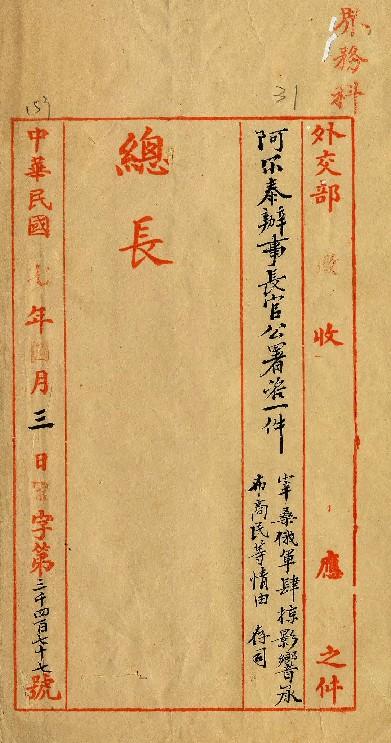 界務科
31
外交部 收 應 之件
阿尔泰辦事長官公署咨一件
宰桑俄軍肆掠影響承
布商民等情由 存司
總長
中華民國 七年 四月三日 字第三千四百七十七號